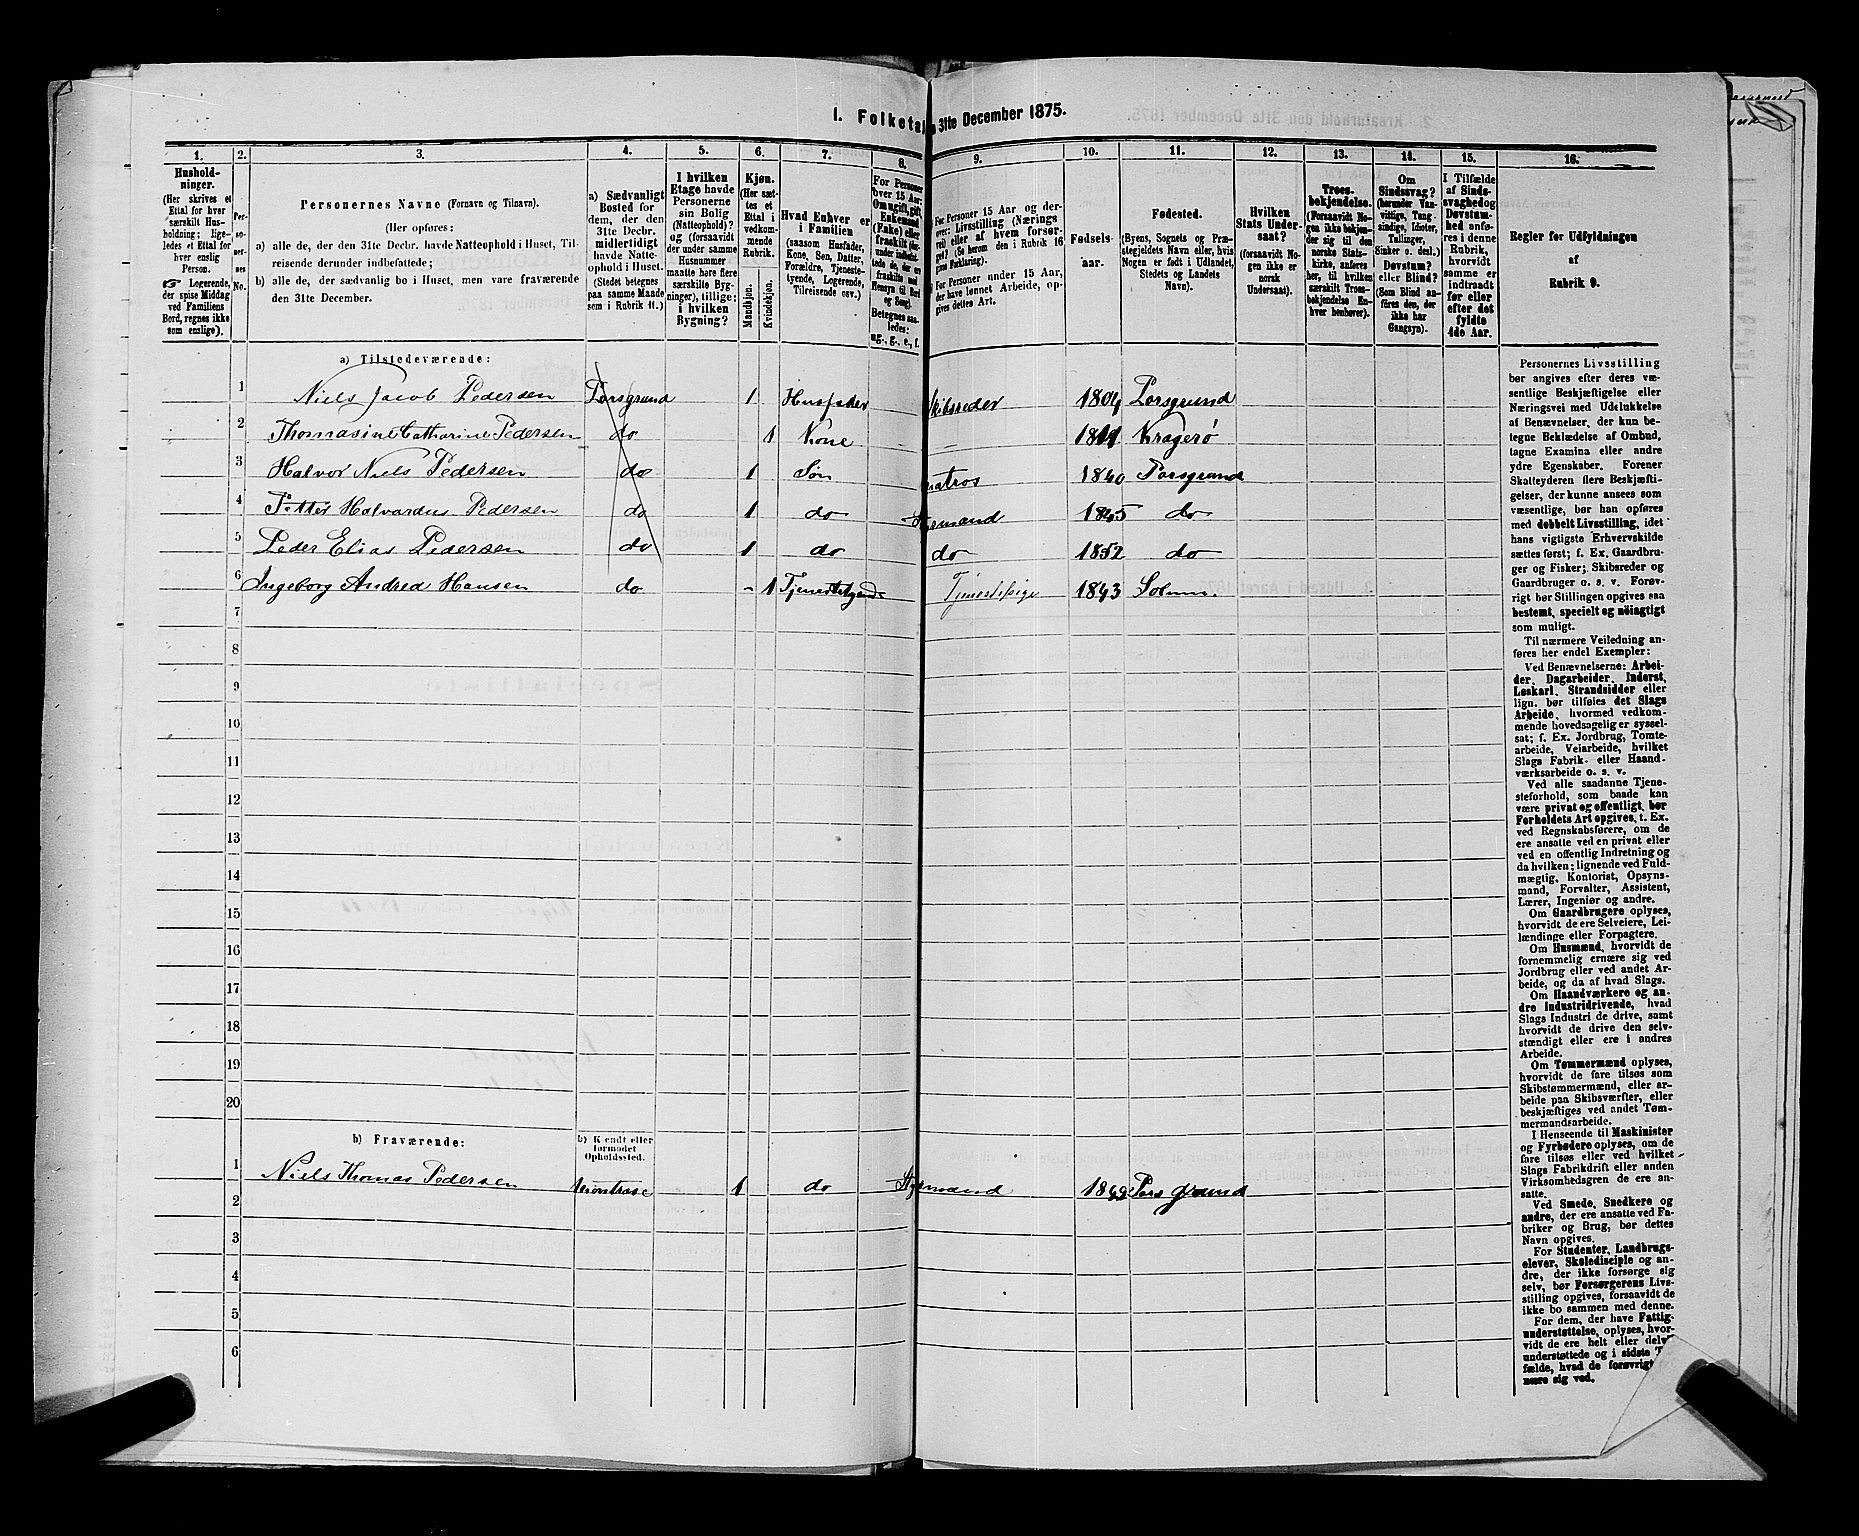 1. Folketal
n 31te December 1875.
1.
2.
3.
4.
5.
6.
7.
8.
9.
10.
11.
12.
13.
14.
15.
16.
Hushold-
ninger.
(Her skrives et
Ettal for hver
særskilt Hus-
holdning; lige-
ledes et Ettal for
hver enslig
Person.
☞ Logerende,
der spise Middag
ved Familiens
Bord, regnes ikke
som enslige).
Per-
so-
ner-
nes
No.
Personernes Navne (Fornavn og Tilnavn).
(Her opføres:
a) alle de, der den 31te Decbr. havde Natteophold i Huset, Til-
reisende derunder indbefattede;
b) alle de, der sædvanlig bo i Huset, men vare fraværende
den 31te December.
a) Sædvanligt
Bosted for
dem, der den
31te Decbr.
midlertidigt
havde Natte-
ophold i Huset.
(Stedet betegnes
paa samme Maade
som i Rubrik 11.)
I hvilken
Etage havde
Personerne
sin Bolig
(Natteophold)?
og (forsaavidt
der under samme
Husnummer
maatte høre flere
særskilte Byg-
ninger), tillige:
i hvilken
Bygning?
Kjøn.
(Her sæt-
tes et
Ettal i
vedkom-
mende
Rubrik.
Mandkjøn.
Kvindekjøn.
Hvad Enhver er
i Familien
(saasom Husfader,
Kone, Søn, Datter,
Forældre, Tjeneste-
tyende, Logerende,
Tilreisende osv.)
For Personer
over 15 Aar:
Om ugift, gift,
Enkemand
(Enke) eller
fraskilt
Betegnes saa-
ledes:
ug., g., e., f.
For Personer 15 Aar og der-
over: Livsstilling (Nærings
vei) eller af hvem forsør-
get? (Se herom den i Rubrik 16
givne Forklaring).
For Personer under 15 Aar,
der have lønnet Arbeide, op-
gives dettes Art.
Fødsels-
aar.
Fødested.
(Byens, Sognets og Præ-
stegjeldets Navn eller, hvis
Nogen er født i Udlandet,
Stedets og Landets
Navn).
Hvilken
Stats Under-
saat?
(forsaavidt No-
gen ikke er
norsk
Undersaat).
Troes-
bekjendelse.
(Forsaavidt No-
gen ikke bekjen-
der sig til den
norske Stats-
kirke, anføres
her, til hvilken
særskilt Troes-
bekjendelse En-
hver henhører).
Om
Sindssvag?
(herunder Van-
vittige, Tung-
sindige, Idioter,
Tullinger,
Sinker o. desl.)
Døvstum?
eller Blind?
(Som Blind an-
føres den, der
ikke har
Gangsyn).
I Tilfælde
af Sinds-
svaghed og
Døvstum-
hed anfø-
res i denne
Rubrik,
hvorvidt
samme er
indtraadt
før eller
efter det
fyldte
4de Aar.
Regler for Udfyldningen
af
Rubrik 9.
a) Tilstedeværende:
1 Niels Jacob Pedersen Porsgrund 1 Husfader Skibsreder 1804 Porsgrund
2 Thomasine Catharine Pedersen do 1 Kone – 1811 Kragerø
3 Halvor Niels Pedersen do 1 Søn matros 1840 Porsgrund
4 Petter Halvardus Pedersen do 1 do Styrmand 1845 do
5 Peder Elias Pedersen do 1 do do 1852 do
6 Ingeborg Andrea Hansen do - 1 Tjenestetyende Tjenestepige 1843 Solum.
7
8
9
10
11
12
13
14
15
16
17
18
19
20
b) Fraværende:
b) Kjendt eller
formodet
Opholdssted.
1 Niels Thomas Pedersen Montrose 1 do Styrmand 1849 Porsgrund
2
3
4
5
6
Personernes Livsstilling
bør angives efter deres væ-
sentlige Beskjæftigelse eller
Næringsvei med Udelukkelse
af Benævnelser, der kun be-
tegne Beklædelse af Ombud,
tagne Examina eller andre
ydre Egenskaber. Forener
Skatteyderen flere Beskjæfti-
gelser, der kunne ansees som
væsentlige, bør han opføres
med dobbelt Livsstilling, idet
hans vigtigste Erhvervskilde
sættes først; f. Ex. Gaardbru-
ger og Fisker; Skibsreder og
Gaardbruger o. s. v. Forøv-
rigt bør Stillingen opgives saa
bestemt, specielt og nøiagtigt
som muligt.
Til nærmere Veiledning an-
føres her endel Exempler:
Ved Benævnelserne: Arbei-
der, Dagarbeider, Inderst,
Løskarl, Strandsidder eller
lign. bør tilføies det Slags
Arbeide, hvormed vedkom-
mende hovedsagelig er syssel-
sat; f. Ex. Jordbrug, Tomte-
arbeide, Veiarbeide, hvilket
Slags Fabrik- eller Haand-
værksarbeide o. s. v.
Ved alle saadanne Tjene-
steforhold, som baade kan
være privat og offentligt, bør
Forholdets Art opgives, t. Ex.
ved Regnskabsførere, om de
ere ansatte ved en privat eller
ved en offentlig Indretning og
da hvilken; lignende ved Fuld-
mægtig, Kontorist, Opsyns-
mand, Forvalter, Assistent,
Lærer, Ingeniør og andre.
Om Gaardbrugere oplyses,
hvorvidt de ere Selveiere, Lei-
lændinge eller Forpagtere.
Om Husmænd, hvorvidt de
fornemmelig ernære sig ved
Jordbrug eller ved andet Ar-
beide, og da af hvad Slags.
Om Haandværkere og an-
dre Industridrivende, hvad
Slags Industri de drive, samt
hvorvidt de drive den selv-
stændigt eller ere i andres
Arbeide.
Om Tømmermænd oplyses,
hvorvidt de fare tilsøs som
Skibstømmermænd, eller ar-
beide paa Skibsværfter, eller
beskjæftiges ved andet Tøm-
mermandsarbeide.
I Henseende til Maskinister
og Fyrbødere oplyses, om de
fare tilsøs eller ved hvilket
Slags Fabrikdrift eller anden
Virksomhedsgren de ere an-
satte.
Ved Smede, Snedkere og
andre, der ere ansatte ved Fa-
briker og Brug, bør dettes
Navn opgives.
For Studenter, Landbrugs-
elever, Skoledisciple og an-
dre, der ikke forsørge sig
selv, bør Forsørgerens Livs-
stilling opgives, forsaavidt de
ikke bo sammen med denne.
For dem, der have Fattig-
understøttelse, oplyses, hvor-
vidt de ere helt eller delv
understøttede og i sidste T
fælde, hvad de forøvrigt
nære sig ved.